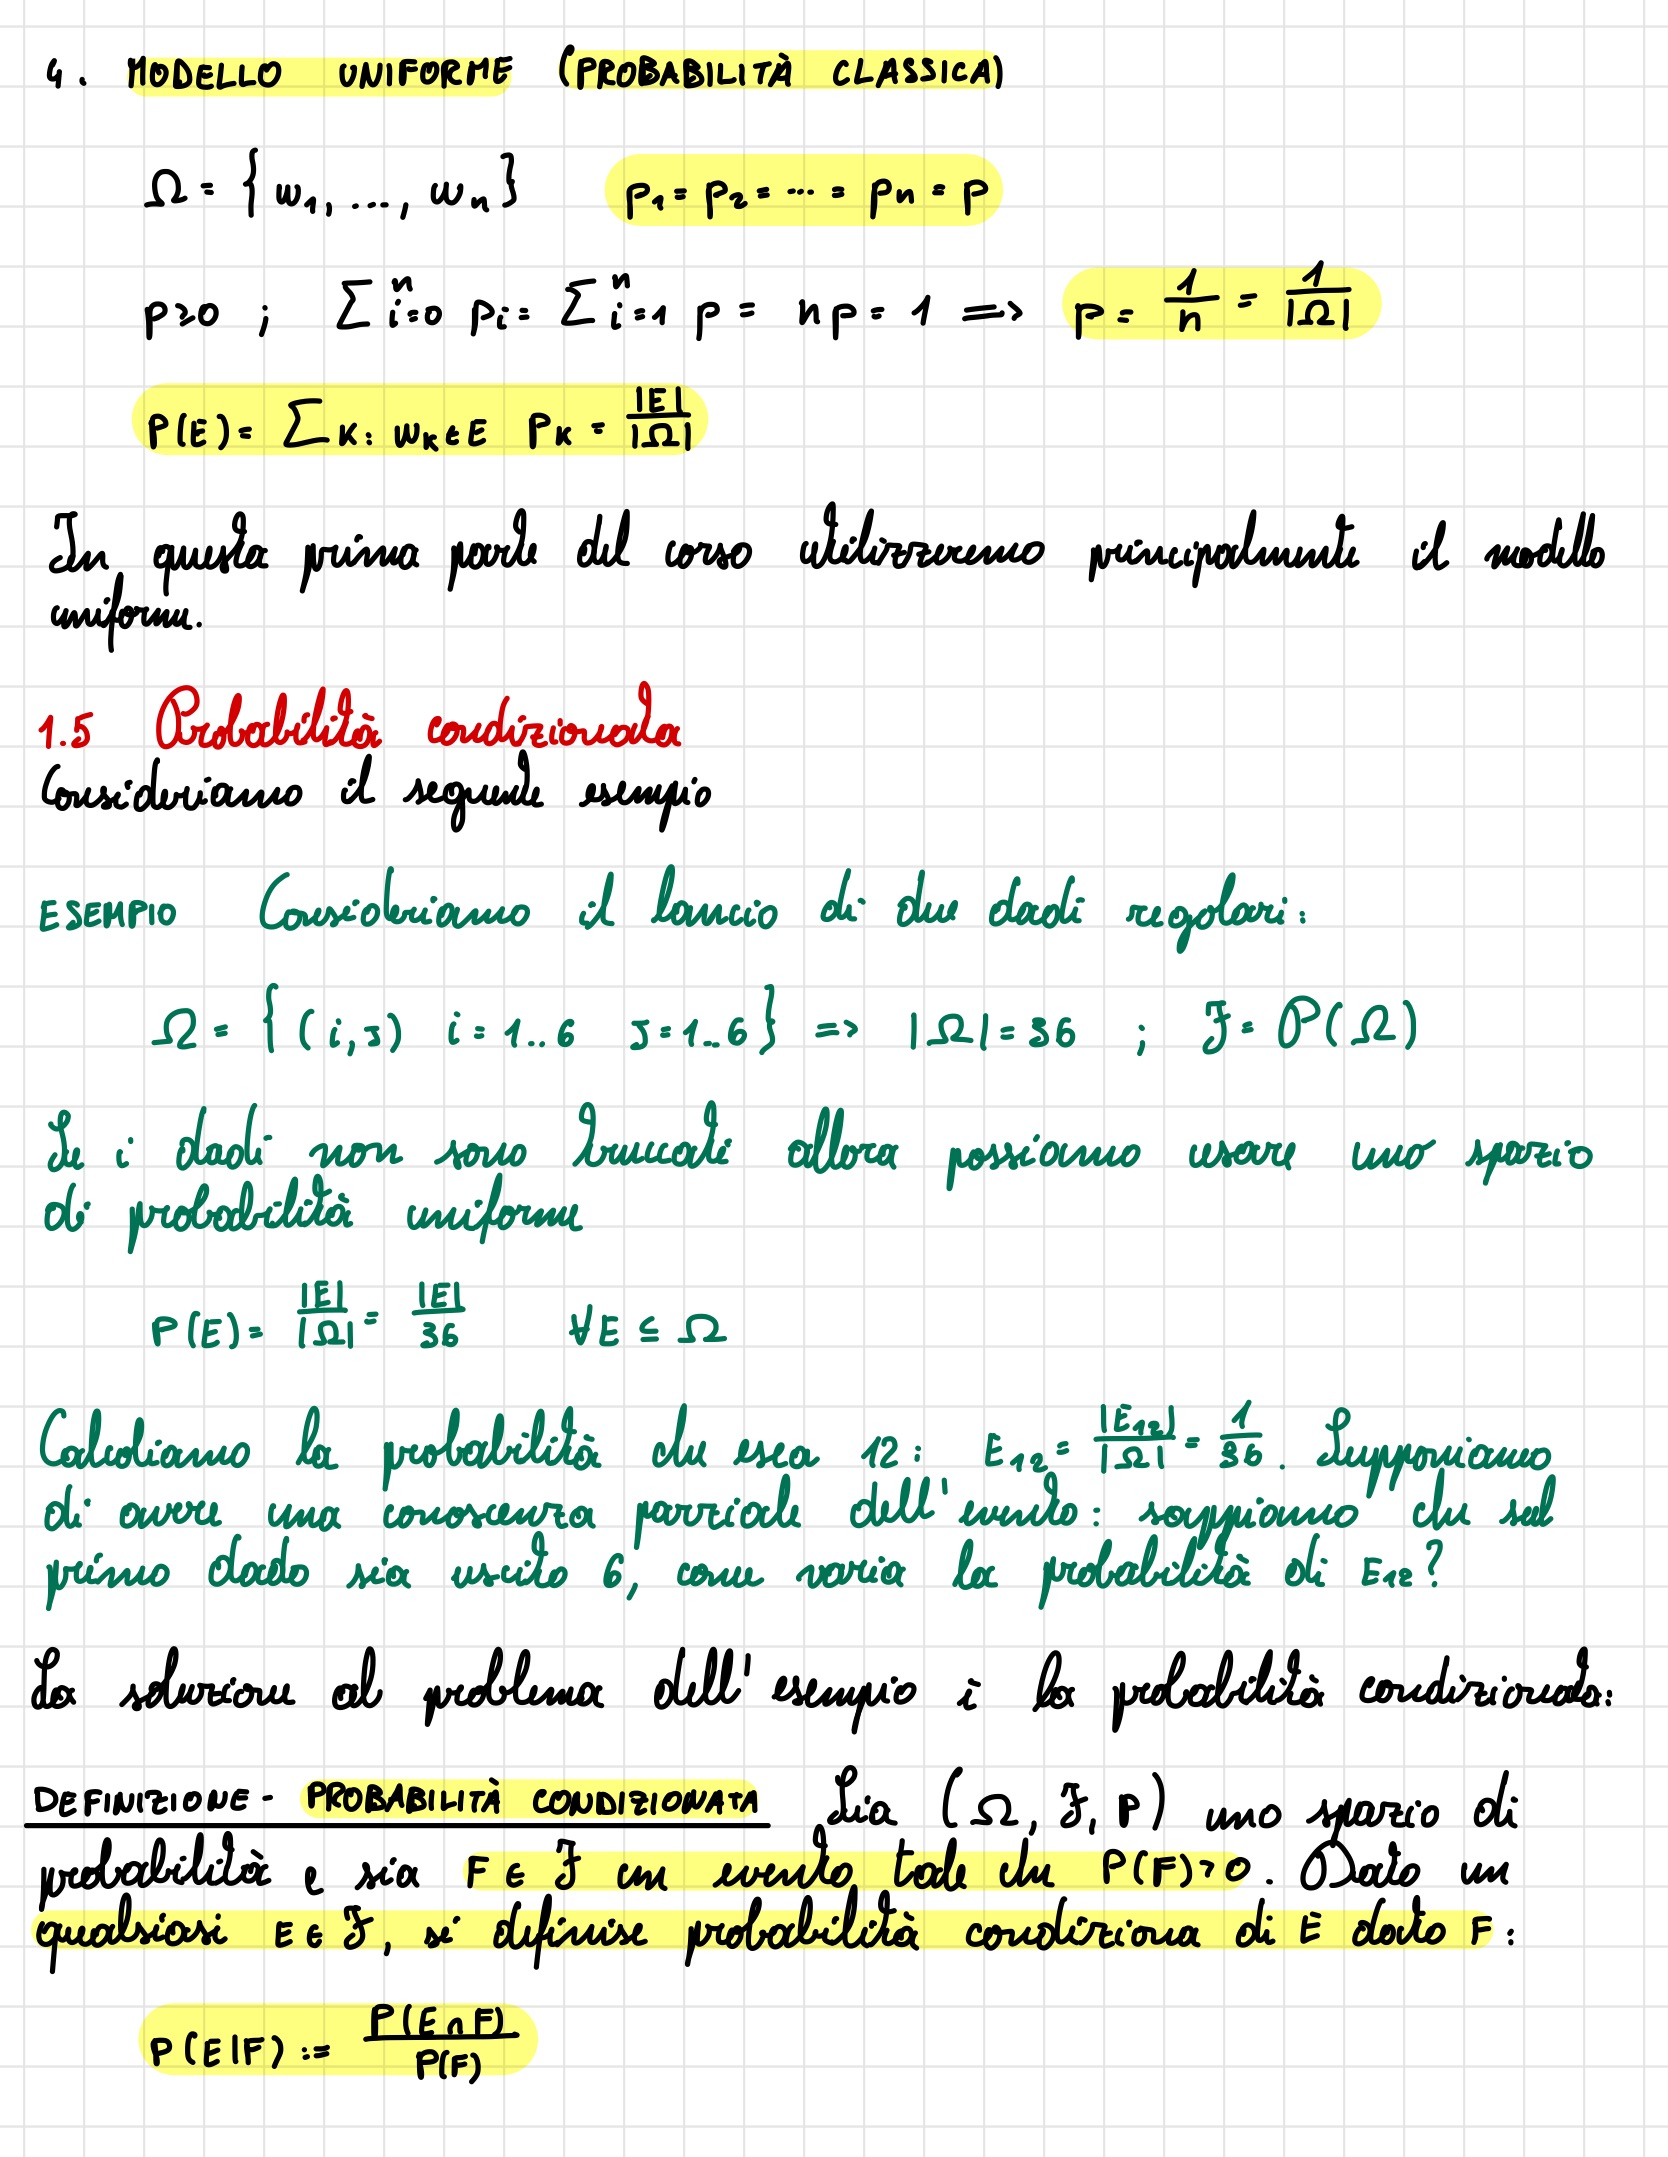 4. MODELLO UNIFORME (PROBABILITÀ CLASSICA)
Ω = { w₁, ..., wₙ } p₁ = p₂ = ... = pₙ = p
p≥0 ; Σ ⁿᵢ₌₀ pᵢ = Σ ⁿᵢ₌₁ p = np = 1 => p = 1/n = 1/|Ω|
P(E) = Σ K: wₖ ∈ E pₖ = |E|/|Ω|
In questa prima parte del corso utilizzeremo principalmente il modello
uniforme.
1.5 Probabilità condizionata
Consideriamo il seguente esempio
ESEMPIO Consideriamo il lancio di due dadi regolari:
Ω = { (i,J) i = 1..6 J = 1..6 } => |Ω| = 36 ; ℱ = 𝒫(Ω)
Se i dadi non sono truccati allora possiamo usare uno spazio
di probabilità uniforme
P(E) = |E|/|Ω| = |E|/36 ∀E ⊆ Ω
Calcoliamo la probabilità che esca 12: E₁₂ = |E₁₂|/|Ω| = 1/36. Supponiamo
di avere una conoscenza parziale dell'evento: sappiamo che sul
primo dado sia uscito 6, come varia la probabilità di E₁₂?
La soluzione al problema dell'esempio è la probabilità condizionata:
DEFINIZIONE - PROBABILITÀ CONDIZIONATA Sia (Ω, ℱ, P) uno spazio di
probabilità e sia F ∈ ℱ un evento tale che P(F)>0. Dato un
qualsiasi E ∈ ℱ, si definise probabilità condiziona di E dato F:
P(E|F) := P(E∩F)/P(F)